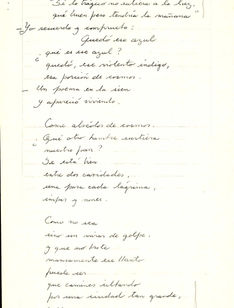 "Si lo trágico no estuviera a la luz,
qué buen peso tendría la mañana"
Yo recuerdo y compruebo:
Quedó ese azul
¿qué es ese azul?
quedó, ese violento índigo,
esa porción de cosmos.
Un poema en la sien
y apareció viviendo.
Como absortos de cosmos.
¿Qué otro hombre
nuestro pan?
Se está bien
entre dos cavidades,
una para cada lágrima,
impar y
Como no sea
sino un mirar de golpe,
y que no brote
mansamente ese llanto
puede ser
que camines
por una ciudad tan grande,